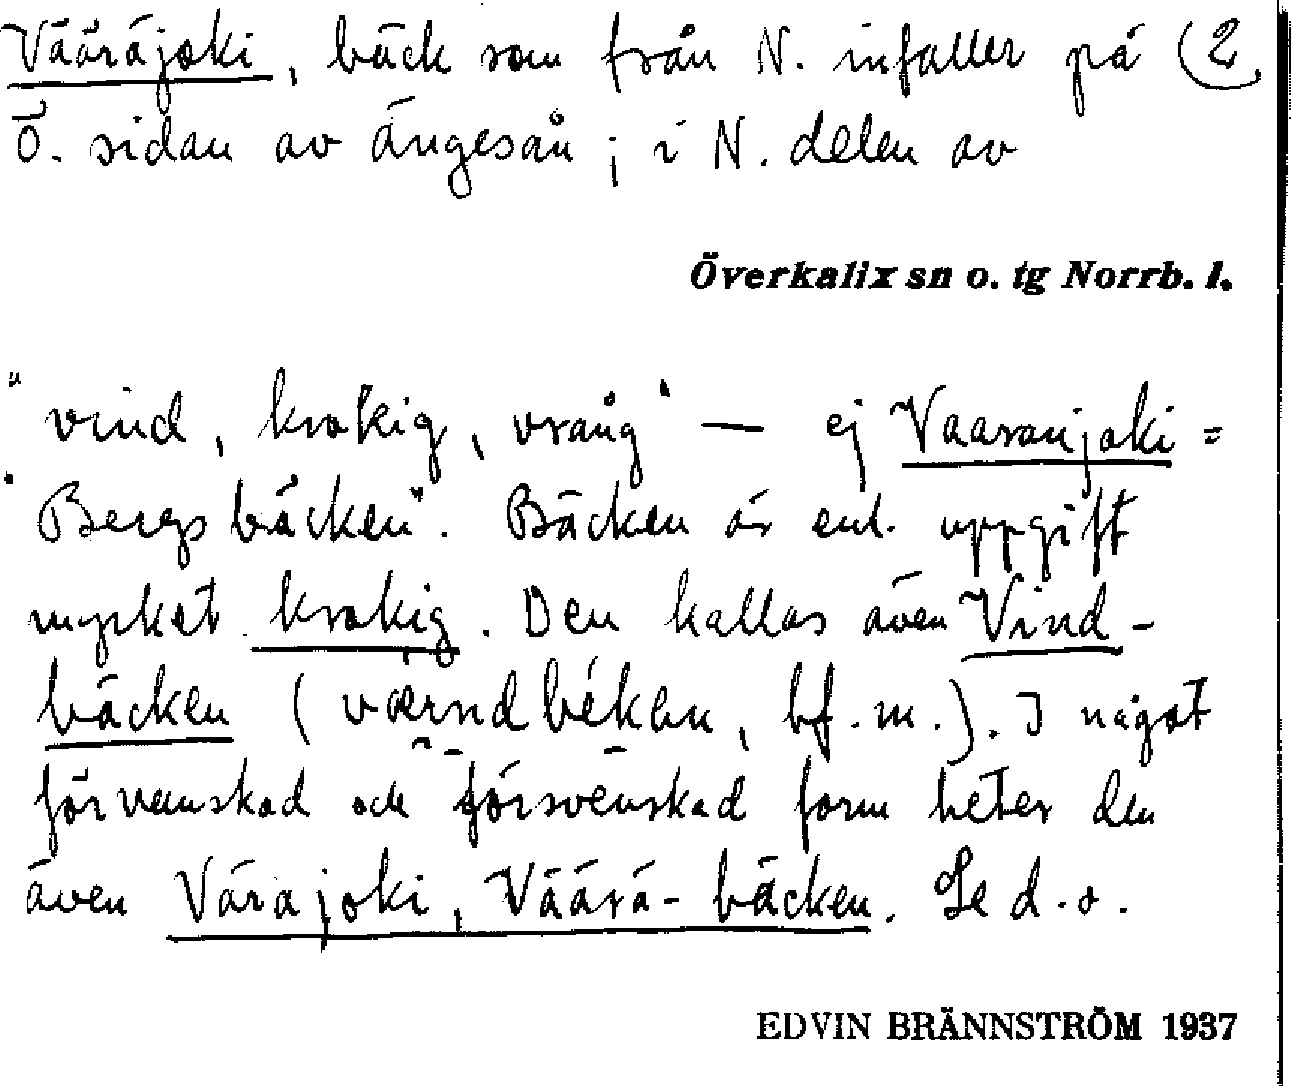 Vääräjoki, bäck som från N. infaller på (2
Ö. sidan av Ängesån; i N. delen av
Överkalix sn o. tg Norrb. l.
"vind, krokig, vrång" — ej Vaaranjoki =
"Bergsbäcken". Bäcken är enl. uppgift
mycket krokig. Den kallas även Vind-
bäcken (værndbékken, bf. m.). I något
förvanskad och försvenskad form heter den
även Värajoki, Väärä-bäcken. Se d.o.
EDVIN BRÄNNSTRÖM 1937